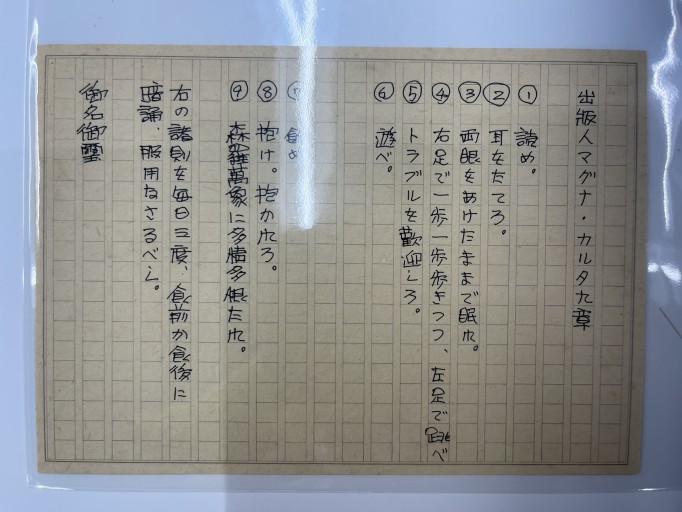 出版人マグナ・カルタ九章
① 読め。
② 耳をたてろ。
③ 両眼をあけたままで眠れ。
④ 右足で一歩一歩歩きつつ、左足で跳べ
⑤ トラブルを歓迎しろ。
⑥ 遊べ。
⑦ 飲め
⑧ 抱け。抱かれろ。
⑨ 森羅萬象に多情多恨たれ。
右の諸則を毎日三度、食前か食後に
暗誦、服用なさるべし。
御名御璽